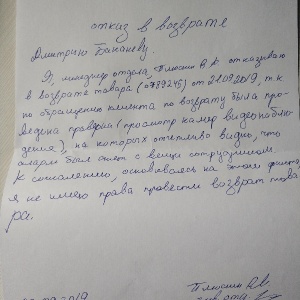 отказ в возврате
Дмитрию Банашеву.
Я, менеджер отдела, Плюсин А.А отказываю
в возврате товара (0789245) от 21.09.2019, т.к
по обращению клиента по возврату была про-
ведена проверка (просмотр камер видеонаблю-
дения), на которых отчетливо видно, что
аларм был снят с вещи сотрудником.
К сожалению, основываясь на этом факте,
я не имею права провести возврат това
ра.
2019
Плюсин А.